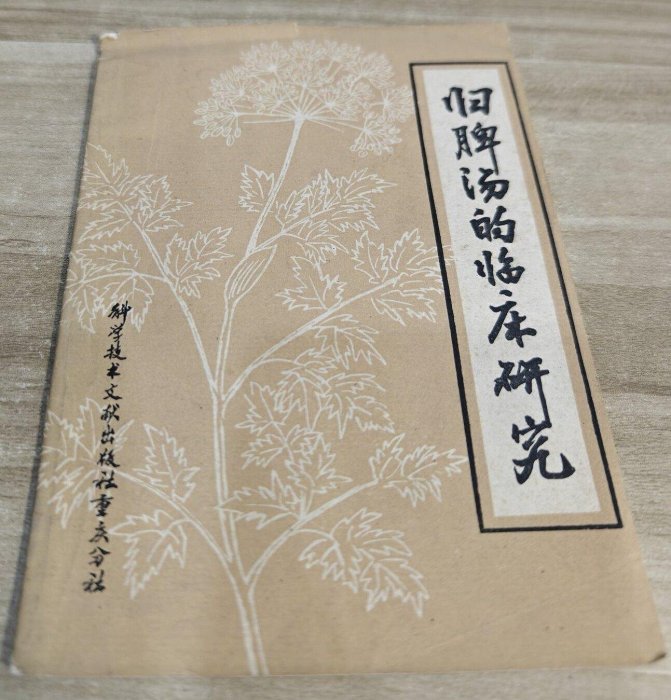 归脾汤的临床研究
科学技术文献出版社重庆分社